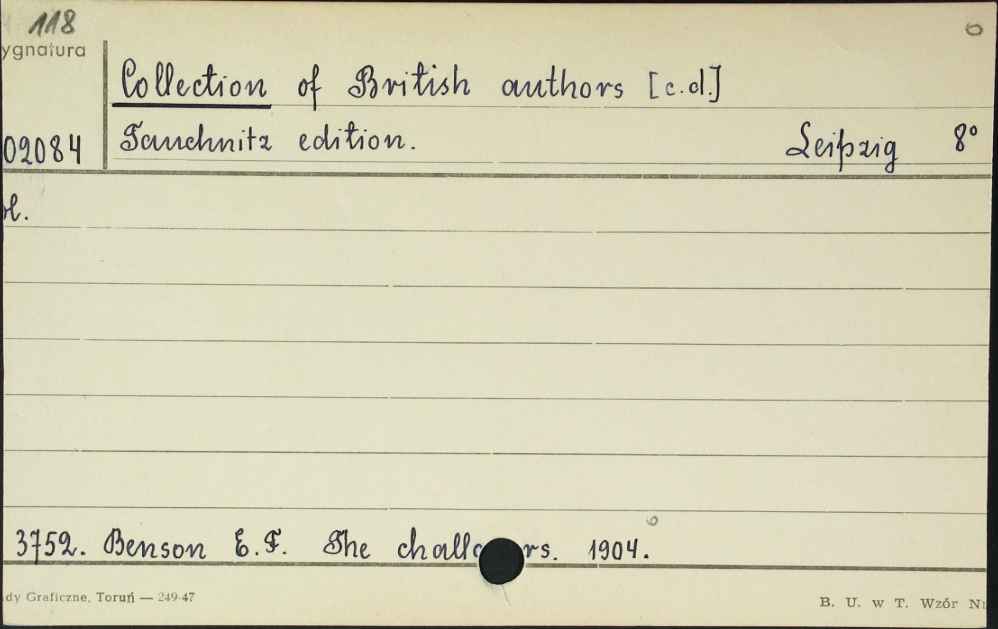 118
ygnatura
Collection of British authors [c.d.]
02084 Tauchnitz edition. Leipzig 8°
ol.
3752. Benson E.F. The challo rs. 1904.
dy Graficzne, Toruń — 249-47
B. U. w T. Wzór Nr